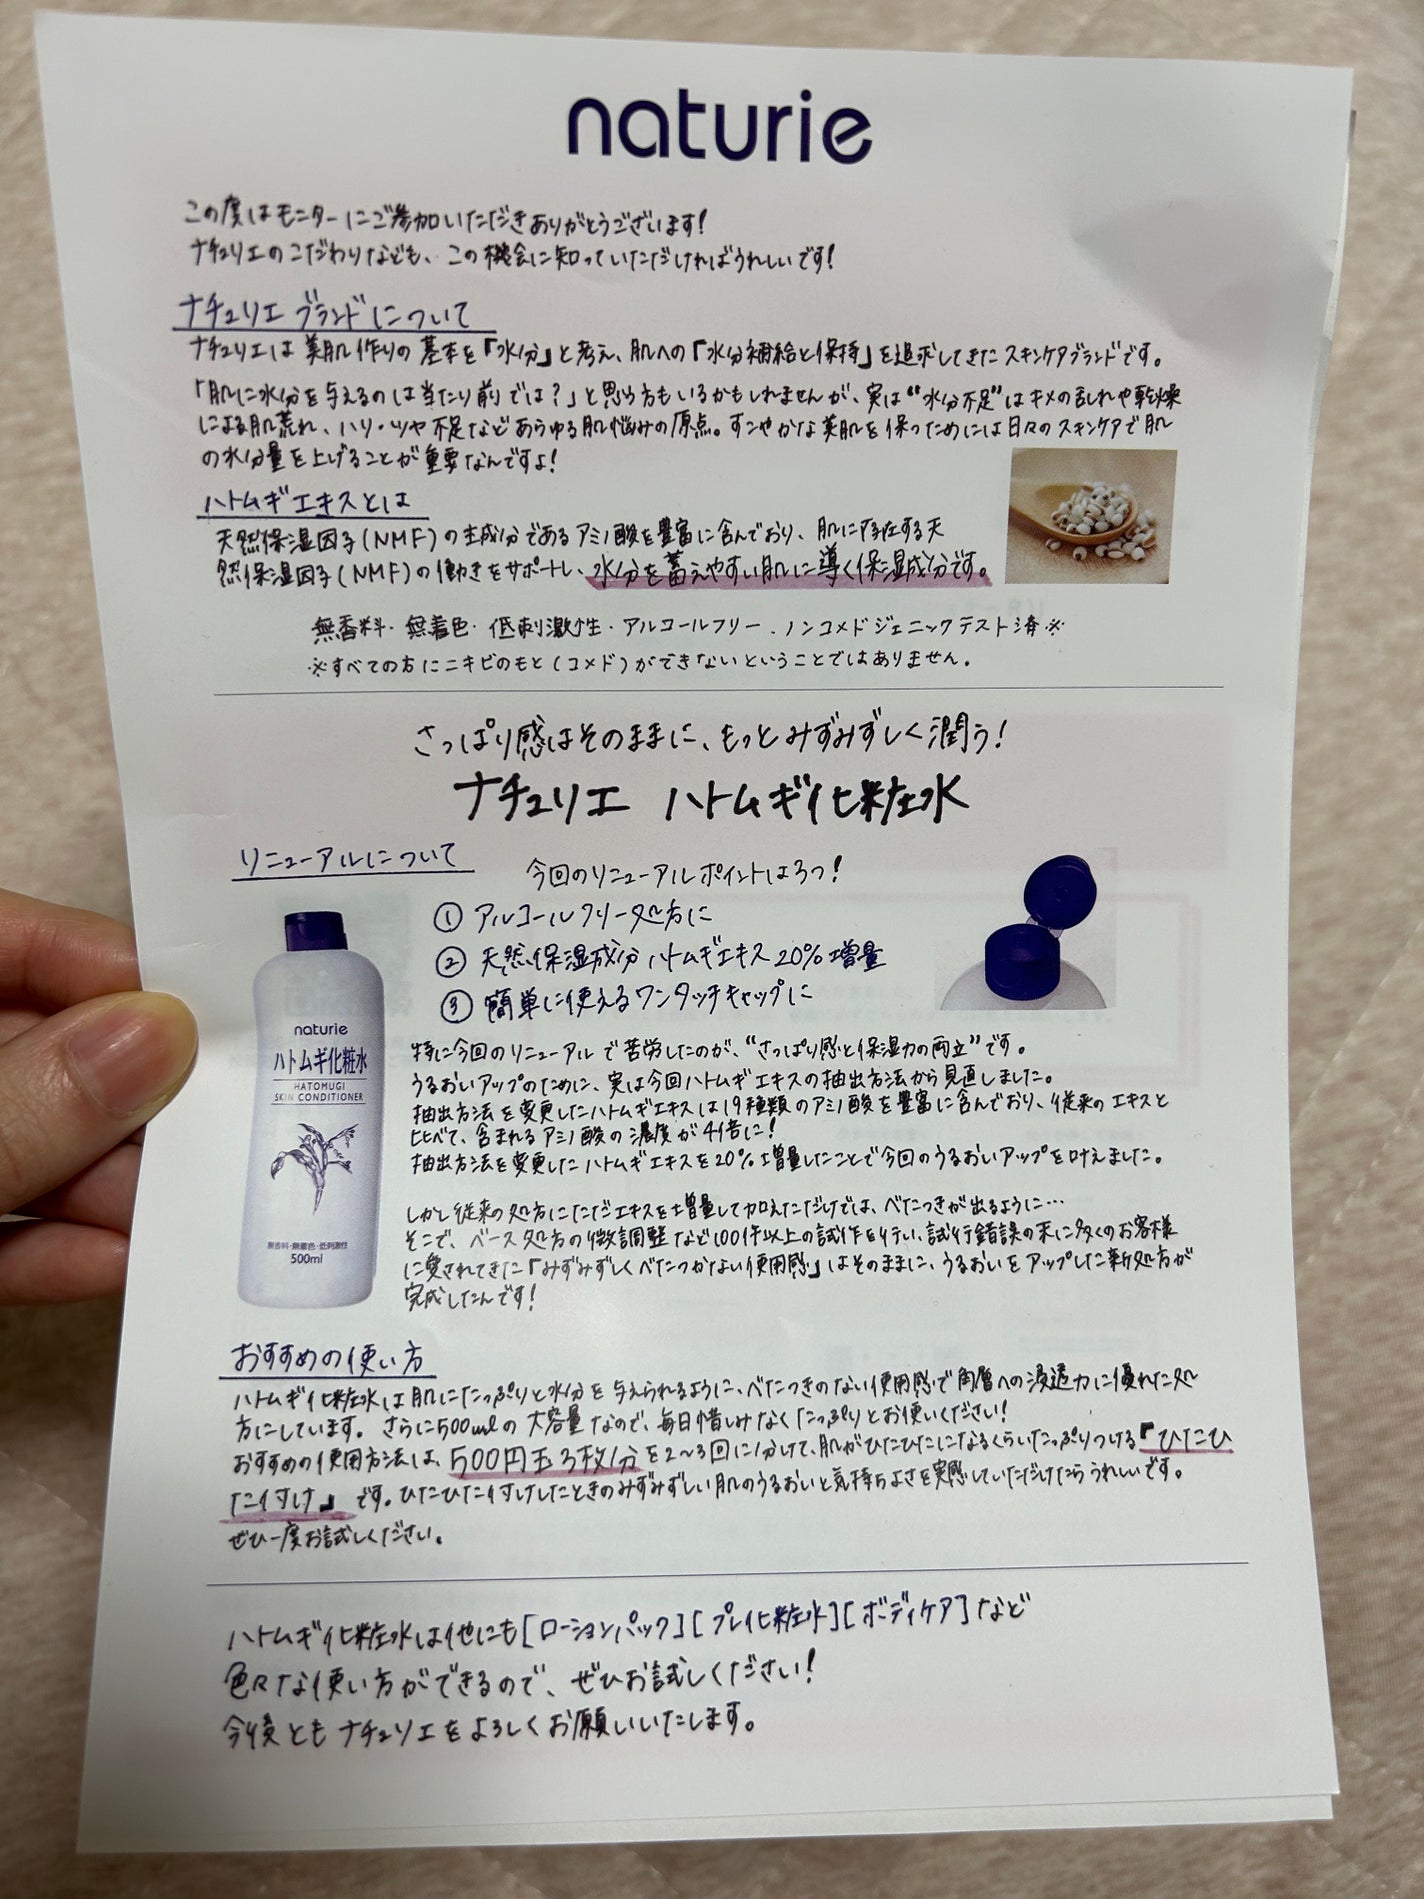 naturie
この度はモニターにご参加いただきありがとうございます!
ナチュリエのこだわりなども、この機会に知っていただければうれしいです!
ナチュリエ ブランドについて
ナチュリエは美肌作りの基本を「水分」と考え、肌への「水分補給と保持」を追求してきたスキンケアブランドです。
「肌に水分を与えるのは当たり前では?」と思う方もいるかもしれませんが、実は“水分不足”はキメの乱れや乾燥
による肌荒れ、ハリ・ツヤ不足などあらゆる肌悩みの原点。すこやかな美肌を保つためには日々のスキンケアで肌
の水分量を上げることが重要なんですよ!
ハトムギエキスとは
天然保湿因子(NMF)の主成分であるアミノ酸を豊富に含んでおり、肌に存在する天
然保湿因子(NMF)の働きをサポートし、水分を蓄えやすい肌に導く保湿成分です。
無香料・無着色・低刺激性・アルコールフリー・ノンコメドジェニックテスト済※
※すべての方にニキビのもと(コメド)ができないということではありません。
さっぱり感はそのままに、もっとみずみずしく潤う!
ナチュリエ ハトムギ化粧水
リニューアルについて
今回のリニューアルポイントは3つ!
① アルコールフリー処方に
② 天然保湿成分ハトムギエキス20%増量
③ 簡単に使えるワンタッチキャップに
naturie
ハトムギ化粧水
HATOMUGI
SKIN CONDITIONER
無香料・無着色・低刺激性
500ml
特に今回のリニューアルで苦労したのが、“さっぱり感と保湿力の両立”です。
うるおいアップのために、実は今回ハトムギエキスの抽出方法から見直しました。
抽出方法を変更したハトムギエキスは19種類のアミノ酸を豊富に含んでおり、従来のエキスと
比べて、含まれるアミノ酸の濃度が4倍に!
抽出方法を変更したハトムギエキスを20%増量したことで今回のうるおいアップを叶えました。
しかし従来の処方にただエキスを増量して加えただけでは、べたつきが出るように…
そこで、ベース処方の微調整など100件以上の試作を行い、試行錯誤の末に多くのお客様
に愛されてきた「みずみずしくべたつかない使用感」はそのままに、うるおいをアップした新処方が
完成したんです!
おすすめの使い方
ハトムギ化粧水は肌にたっぷりと水分を与えられるように、べたつきのない使用感で角層への浸透力に優れた処
方にしています。さらに500mlの大容量なので、毎日惜しみなくたっぷりとお使いください!
おすすめの使用方法は、500円玉3枚分を2〜3回に分けて、肌がひたひたになるくらいたっぷりつける『ひたひ
た付け』です。ひたひた付けしたときのみずみずしい肌のうるおいと気持ちよさを実感していただけたらうれしいです。
ぜひ一度お試しください。
ハトムギ化粧水は他にも[ローションパック][プレ化粧水][ボディケア]など
色々な使い方ができるので、ぜひお試しください!
今後ともナチュリエをよろしくお願いいたします。